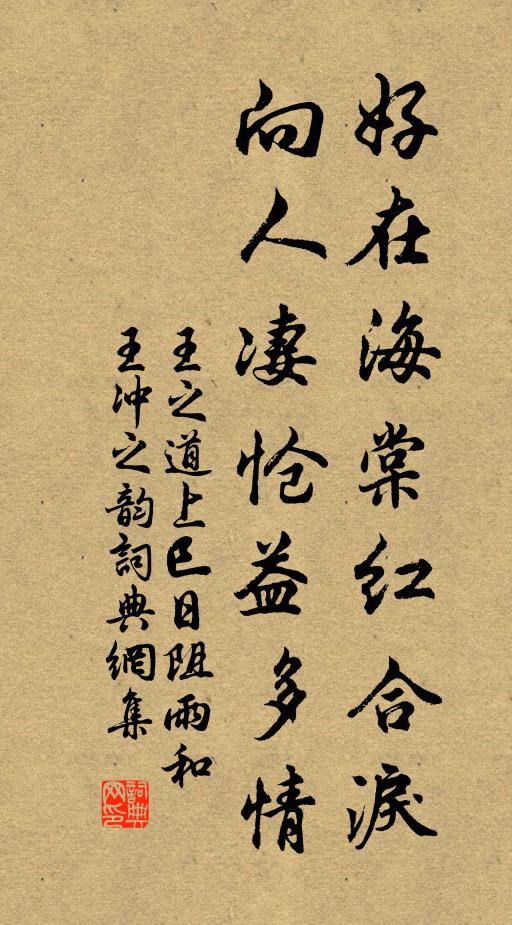 好在海棠红合淚
向人凄怆益多情
王之道上巳日阻雨和
王冲之韵詞典網集
詞典网印